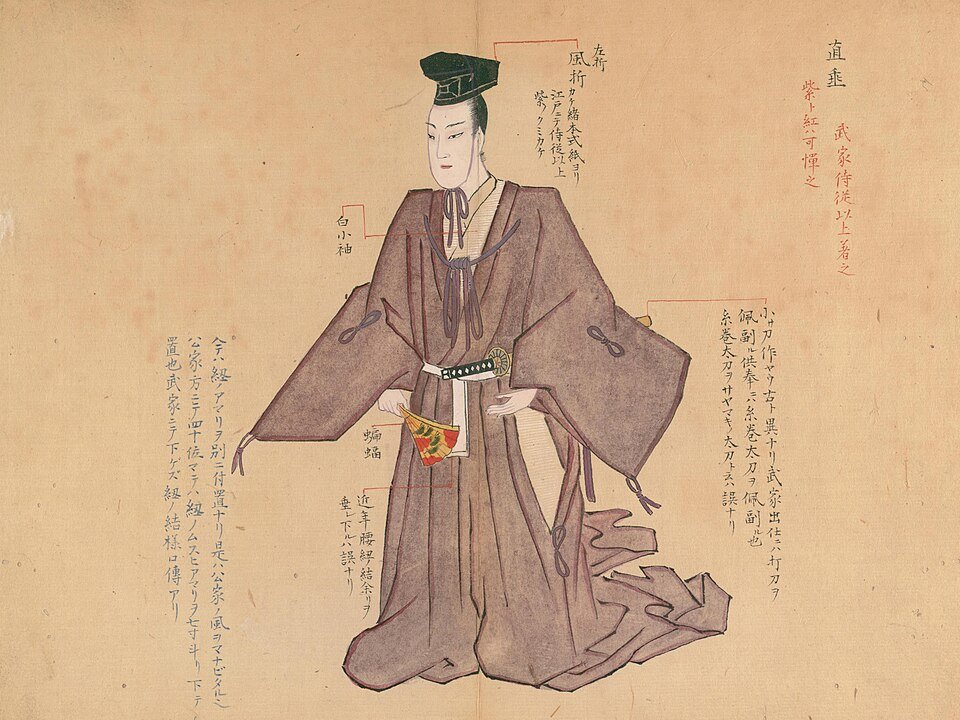 直垂
武家侍従以上著之
紫ト紅ハ可憚之
左折
風折カケ緒本式紙ヨリ
江戸ニテ侍従以上
紫ノクミカケ
白小袖
小サ刀作ヤウ古ト異ナリ武家出仕ニハ打刀ヲ
佩副ル供奉ニハ糸巻太刀ヲ佩副ル也
糸巻太刀ヲサヤマキノ太刀ト云ハ誤ナリ
蝙蝠
近年腰紐結余リヲ
垂レ下ルハ誤ナリ
今テハ紐ノアマリヲ別ニ付置ナリ是ハ公家ノ風ヲマナビタル也
公家方ニテ四十位マテハ紐ノムスヒアマリヲ七寸斗リ下テ
置也武家ニテ下ゲズ紐ノ結様口傳アリ